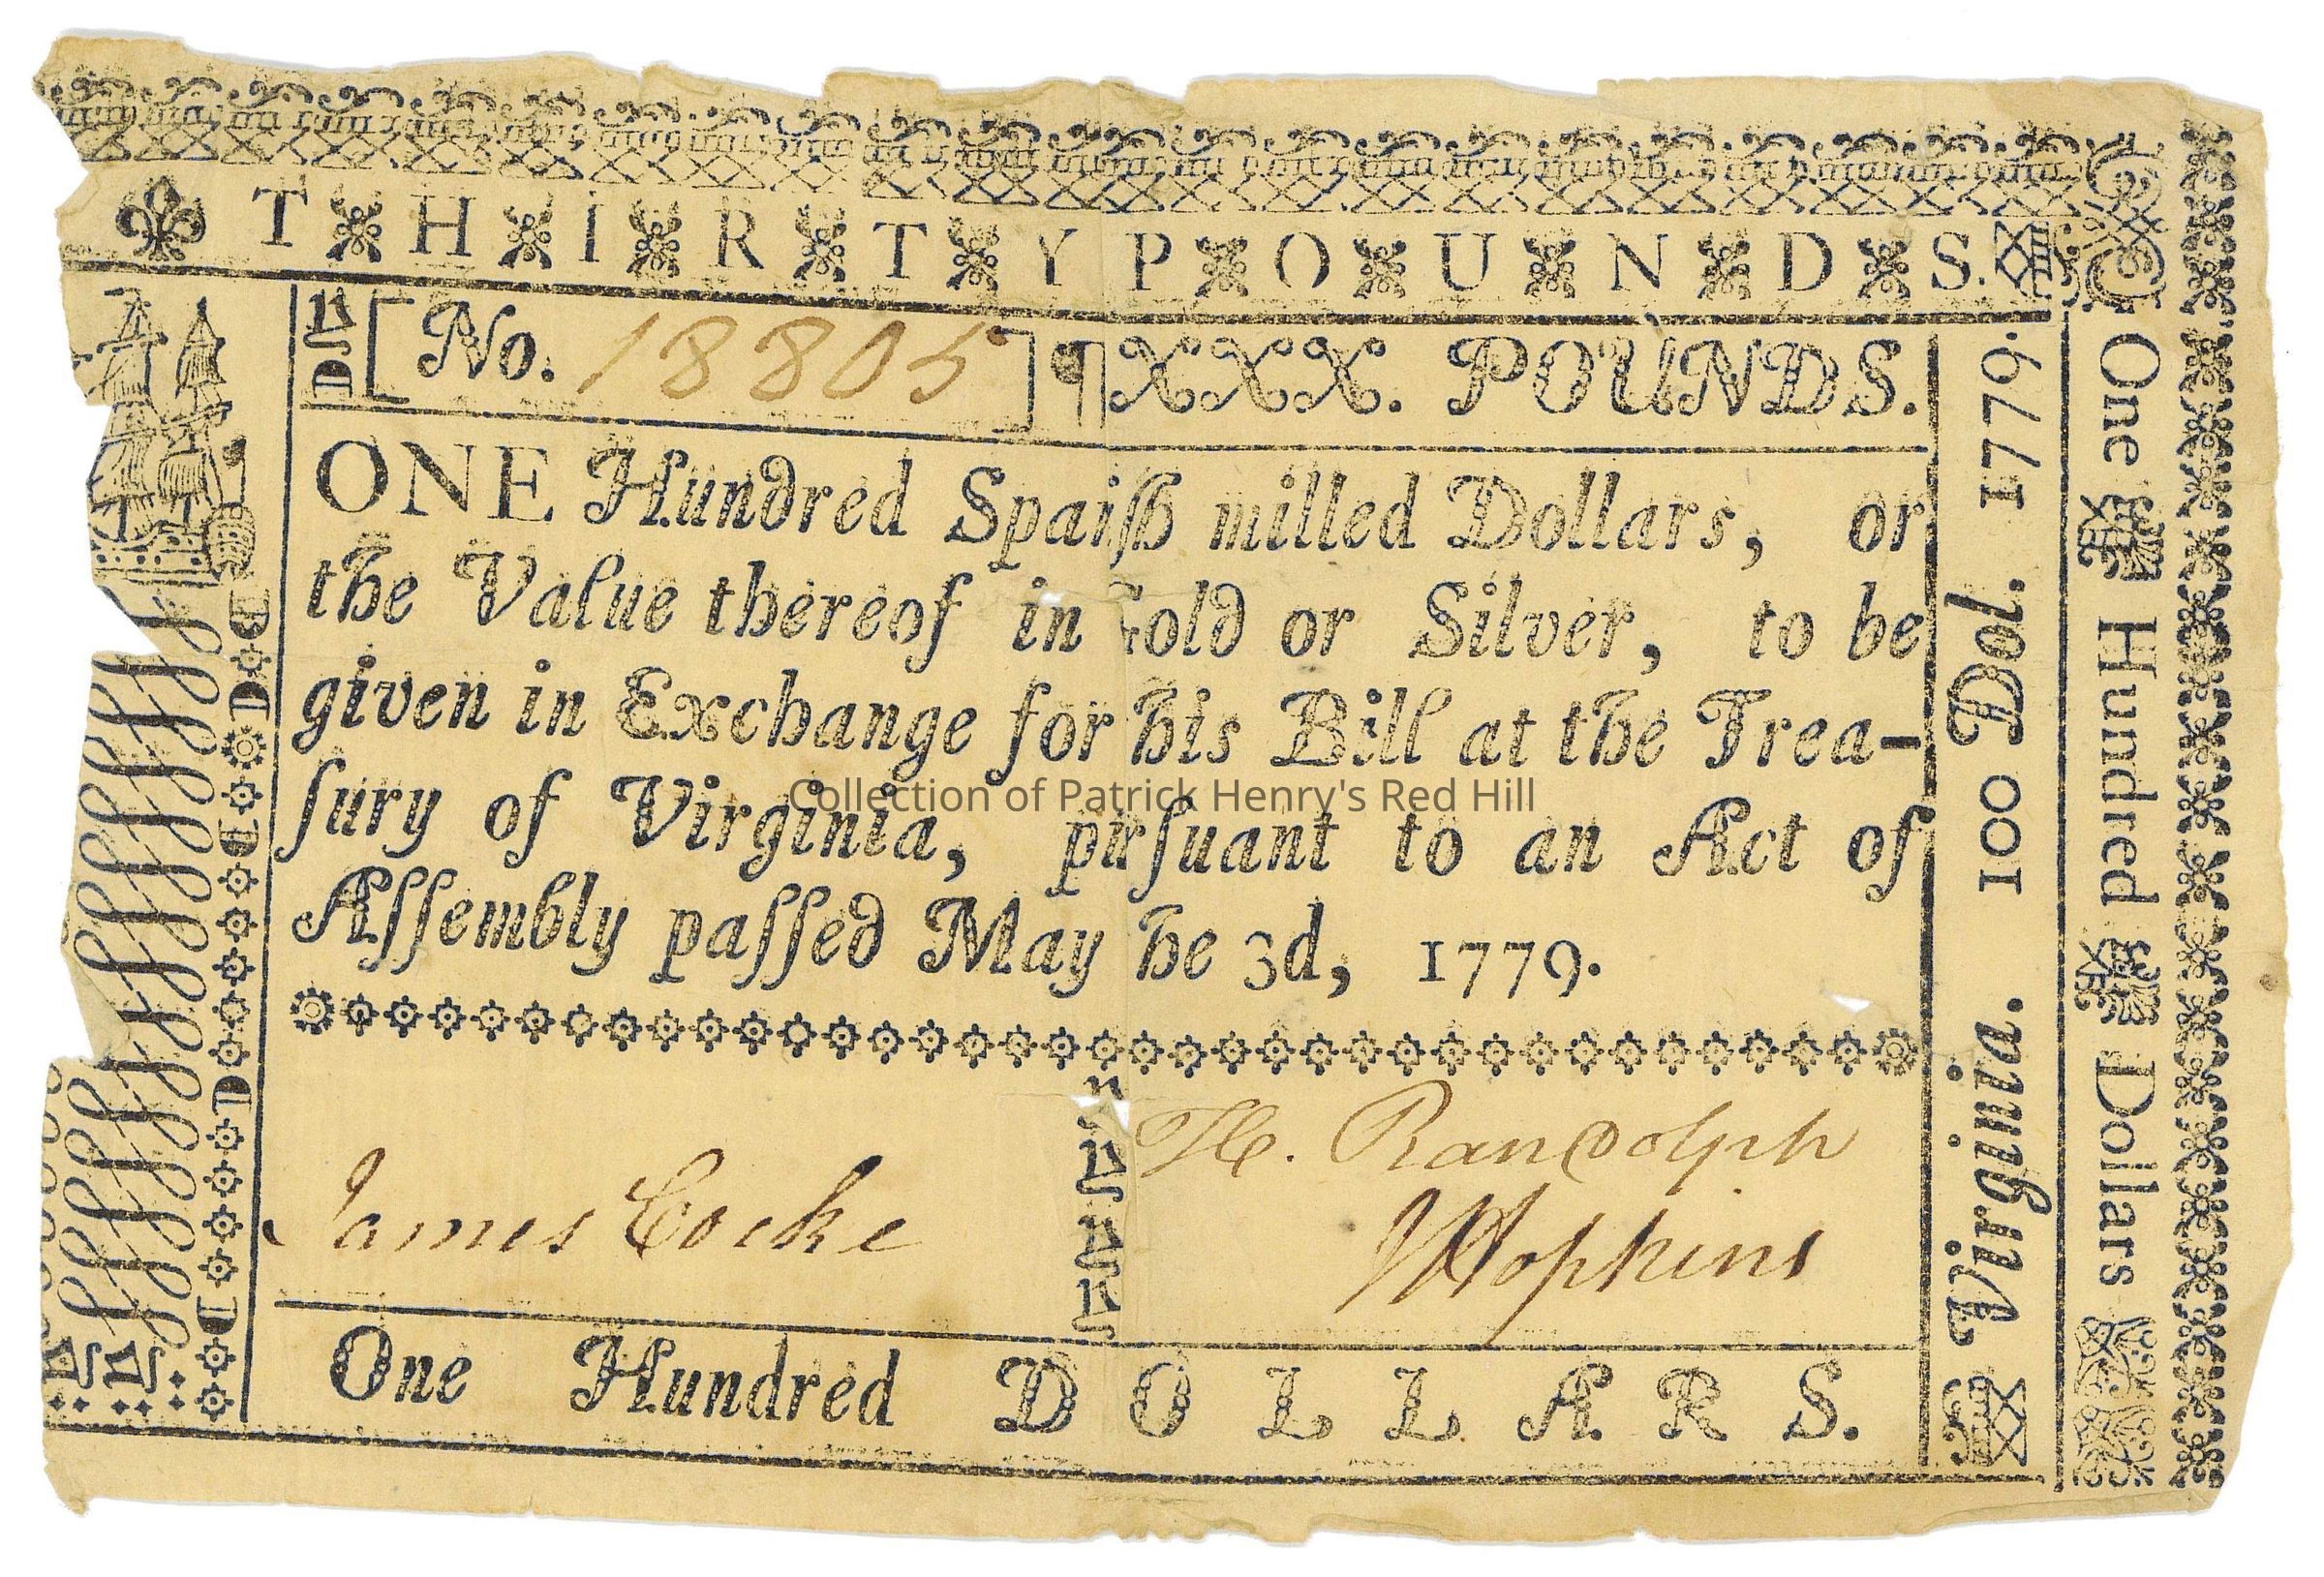 THIRTY POUNDS.
No. 18805
XXX. POUNDS.
ONE Hundred Spaiſh milled Dollars, or
the Value thereof in Gold or Silver, to be
given in Exchange for his Bill at the Trea-
ſury of Virginia, purſuant to an Act of
Aſſembly paſſed May he 3d, 1779.
James Cocke
H. Randolph
WHopkins
One Hundred DOLLARS.
Virginia. 100 Dol. 1779.
One Hundred Dollars
Collection of Patrick Henry's Red Hill